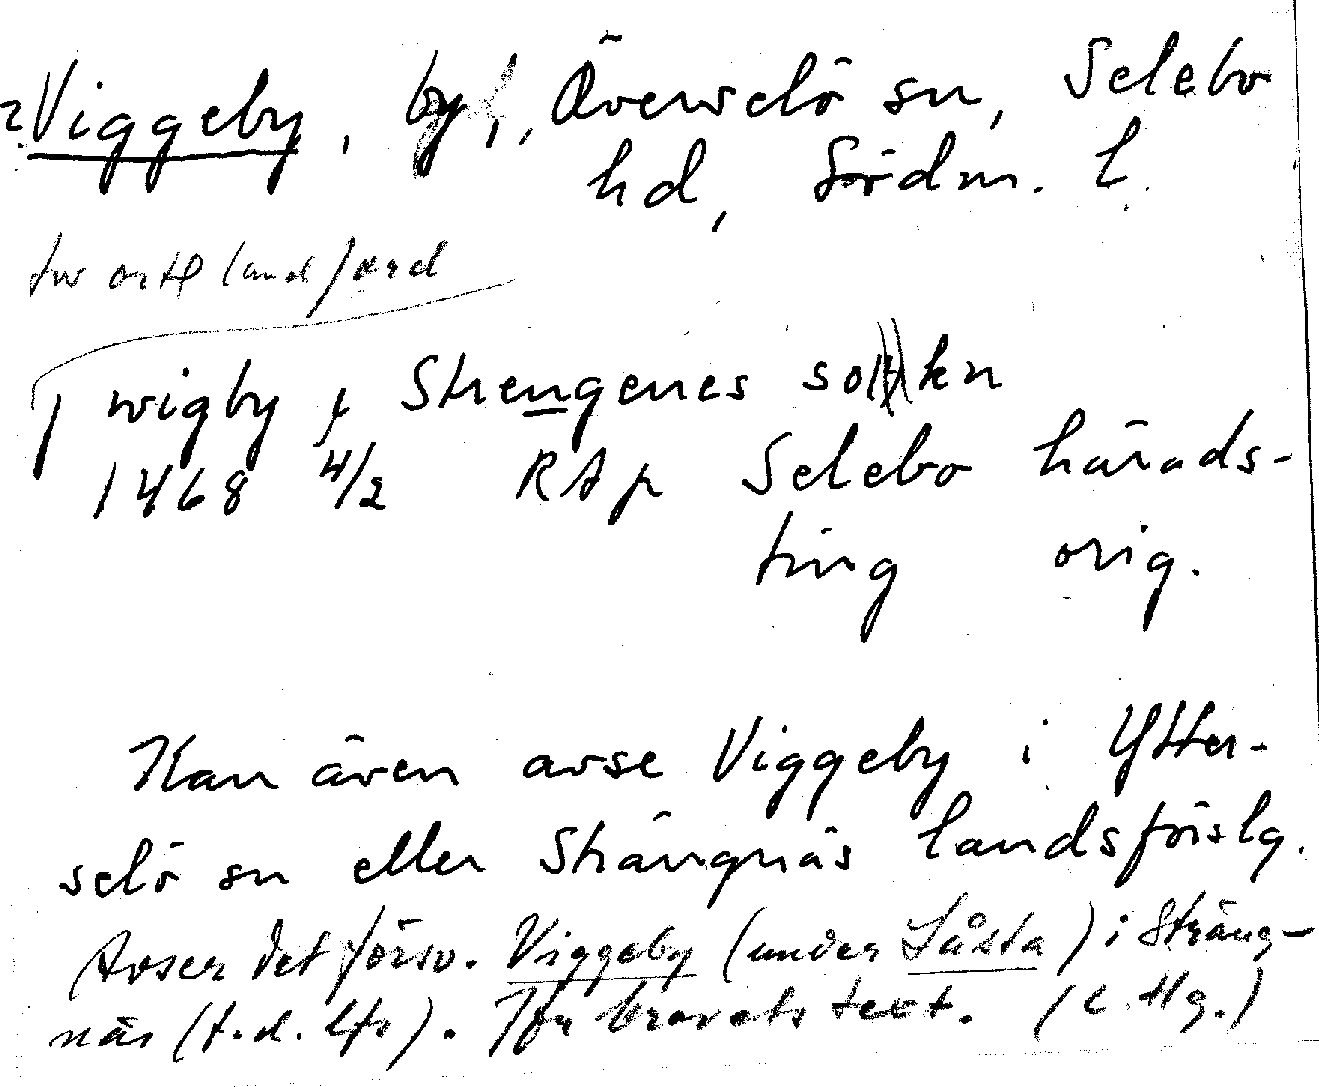 ? Viggeby, by, Överselö sn, Selebo
hd, Södm. l.
tw orth land jord
j wigby j Strengenes sokn
1468 4/2 RAp Selebo härads-
ting orig.
Kan även avse Viggeby i Ytter-
selö sn eller Strängnäs landsförslg.
(Avser det försv. Viggeby (under Låsta) i Sträng-
näs (f.d. lfs). Jfr brevets text. (C. Hg.)